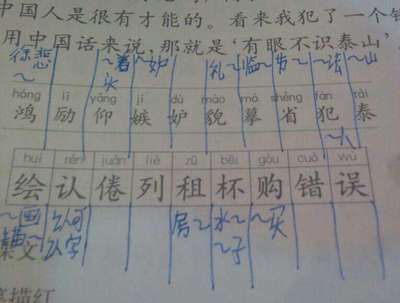 中国人是很有才能的。看来我犯了一个
用中国话来说,那就是‘有眼不识泰山’
~着 ~妒 礼~ 临~ 节~ ~法 ~山
头
hóng lì yǎng jí dù mào mó shěng fàn tài
鸿 励 仰 嫉 妒 貌 摹 省 犯 泰
~人
huì rèn juàn liè zū bēi gòu cuò wù
绘 认 倦 列 租 杯 购 错 误
~画 认可 房~ 水~ ~买
描~ 认字 ~子
描红